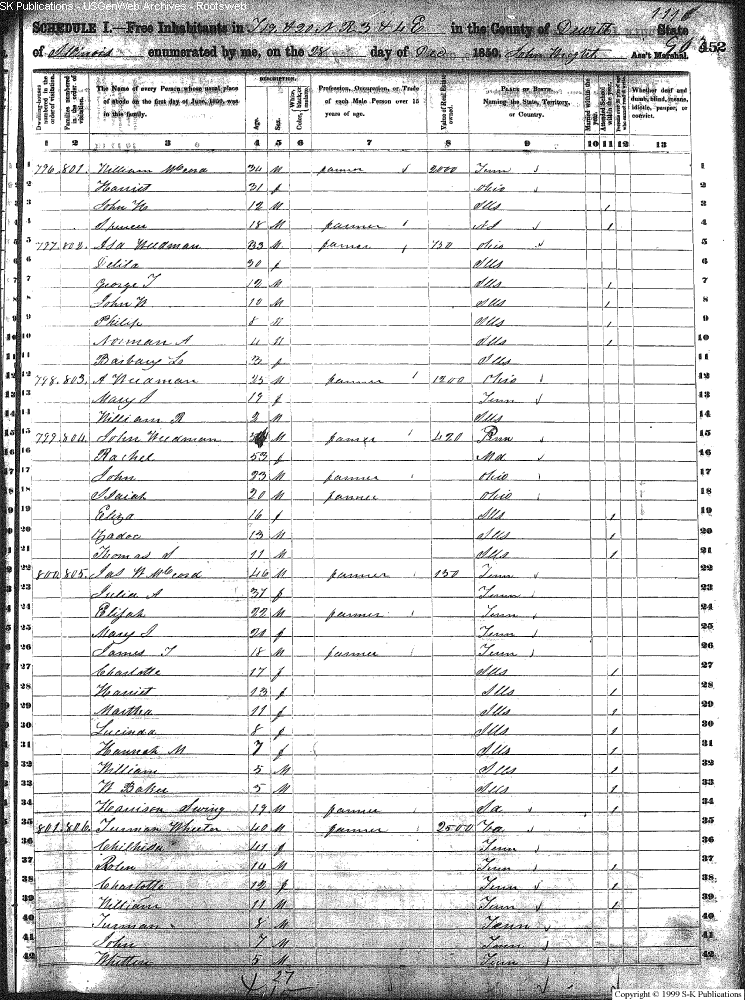 SK Publications - USGenWeb Archives - Rootsweb
SCHEDULE I.—Free Inhabitants in T 19 & 20 N R 3 & 4 E in the County of Dewitt State
of Illinois enumerated by me, on the 28 day of Dec 1850. John Ass't Marshal. 452
DESCRIPTION.
Dwelling-houses numbered in the order of visitation.
Families numbered in the order of visitation.
The Name of every Person whose usual place of abode on the first day of June, 1850, was in this family.
Age.
Sex.
Color, White, black, or mulatto.
Profession, Occupation, or Trade of each Male Person over 15 years of age.
Value of Real Estate owned.
PLACE OF BIRTH. Naming the State, Territory, or Country.
Married within the year.
Attended School within the year.
Whether deaf and dumb, blind, insane, idiotic, pauper, or convict.
1 2 3 4 5 6 7 8 9 10 11 12 13
1 796 801 William McCord 34 M farmer 2000 Tenn 1
2 Harriet 31 f Ohio 2
3 John H 12 M Ills 1 3
4 Spencer 18 M farmer 1 4
5 797 802 Asa Weedman 33 M farmer 150 Ohio 5
6 Delila 30 f Ills 6
7 George T 12 M Ills 1 7
8 John W 10 M Ills 1 8
9 Philip 8 M Ills 1 9
10 Norman A 4 M Ills 1 10
11 Barbary 3 f Ills 11
12 798 803 A Weedman 25 M farmer 1200 Ohio 12
13 Mary J 19 f Tenn 13
14 William R 2 M Ills 14
15 799 804 John Weedman M farmer 420 Penn 15
16 Rachel 53 f Md 16
17 John 23 M farmer Ohio 17
18 Isaiah 20 M farmer Ohio 18
19 Eliza 16 f Ills 1 19
20 Zadoc 13 M Ills 1 20
21 Thomas S 11 M Ills 1 21
22 800 805 Jas W McCord 46 M farmer 150 Tenn 22
23 Julia A 37 f Tenn 23
24 Elijah 22 M farmer Tenn 24
25 Mary J 20 f Tenn 25
26 James T 18 M farmer Tenn 26
27 Charlotte 17 f Ills 1 27
28 Harriet 13 f Ills 1 28
29 Martha 11 f Ills 1 29
30 Lucinda 8 f Ills 1 30
31 Hannah M 7 f Ills 1 31
32 William 5 M Ills 1 32
33 W Baker 5 M Ills 1 33
34 Harrison Swing 19 M farmer 1 34
35 801 806 Turman Wheeler 40 M farmer 2500 Va 35
36 41 f Tenn 36
37 14 M Tenn 1 37
38 Charlotte 12 f Tenn 1 38
39 William 11 M Tenn 1 39
40 Turman 8 M Tenn 40
41 John 7 M Tenn 41
42 Whitten 5 M Tenn 42
27
Copyright © 1999 S-K Publications